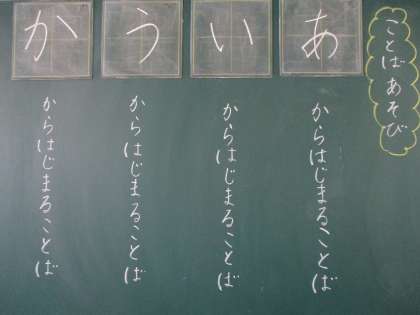 ことばあそび
あ からはじまることば
い からはじまることば
う からはじまることば
か からはじまることば